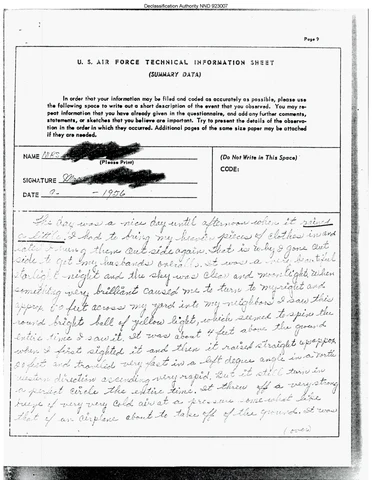 Declassification Authority NND 923007
Page 9
U. S. AIR FORCE TECHNICAL INFORMATION SHEET
(SUMMARY DATA)
In order that your information may be filed and coded as accurately as possible, please use
the following space to write out a short description of the event that you observed. You may re-
peat information that you have already given in the questionnaire, and add any further comments,
statements, or sketches that you believe are important. Try to present the details of the observa-
tion in the order in which they occurred. Additional pages of the same size paper may be attached
if they are needed.
NAME
(Please Print)
(Do Not Write in This Space)
CODE:
SIGNATURE
DATE - 1956
The day was a nice day until afternoon when it rained
a little. I had to bring my heavier pieces of clothes in and
them out side again. That is why I gone out
side to get my husbands overalls. It was a very beautiful
starlight night and the sky was clear and moonlight, when
something very brilliant caused me to turn to my right and
approx 60 feet across my yard into my neighbors I saw this
round bright ball of yellow light, which seemed to spin the
entire time I saw it. It was about 4 feet above the ground
when I first sighted it and then it raised straight up approx
feet and traveled very fast in a left degree angle in a north
western direction ascending very rapid. But it still turn in
a perfect circle the entire time. It threw off a very strong
breeze of very very cold air at a pressure somewhat like
that of an airplane about to take off of the ground. It was
(over)